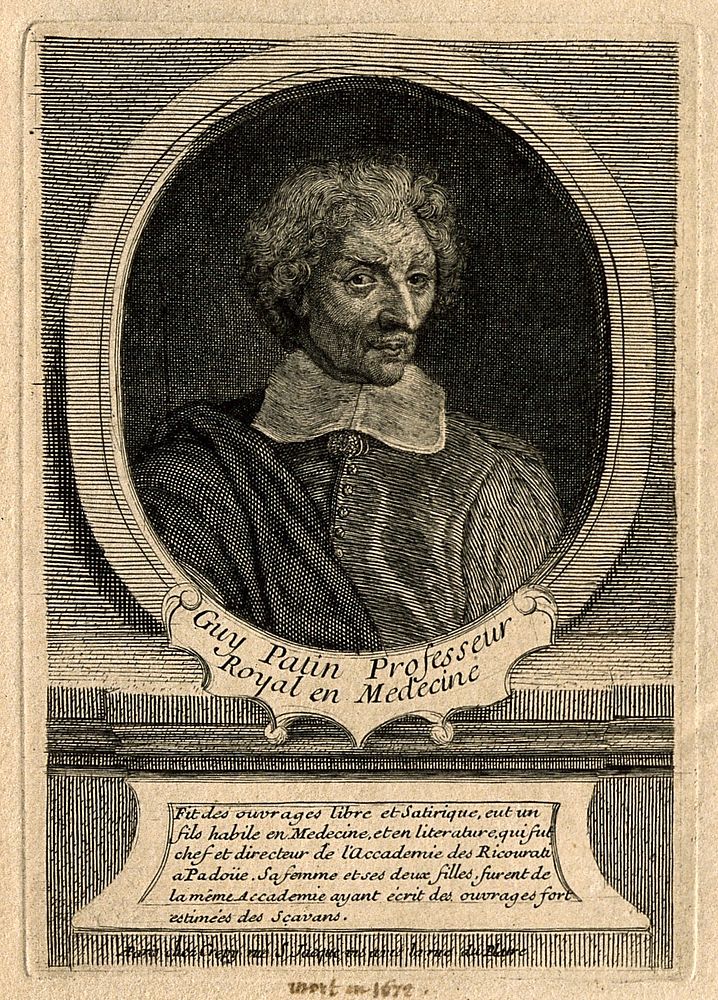 Guy Patin Professeur
Royal en Medecine
Fit des ouvrages libre et Satirique, eut un
fils habile en Medecine, et en literature, qui fut
chef et directeur de l'Accademie des Ricourati
a Padoüe. Sa femme et ses deux filles, furent de
la même Accademie ayant écrit des ouvrages fort
estimées des Sçavans.
chez Crepy rue S. Jacque
mort en 1672.